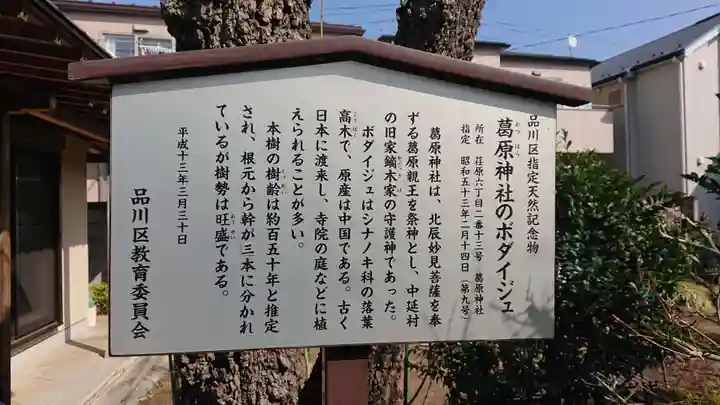 品川区指定天然記念物
葛原神社のボダイジュ
かつ はら
所在 荏原六丁目二番十三号 葛原神社
指定 昭和五十三年二月十四日(第九号)
葛原神社は、北辰妙見菩薩を奉
ずる葛原親王を祭神とし、中延村
の旧家鏑木家の守護神であった。
ボダイジュはシナノキ科の落葉
高木で、原産は中国である。古く
日本に渡来し、寺院の庭などに植
えられることが多い。
本樹の樹齢は約百五十年と推定
され、根元から幹が三本に分かれ
ているが樹勢は旺盛である。
平成十三年三月三十日
品川区教育委員会